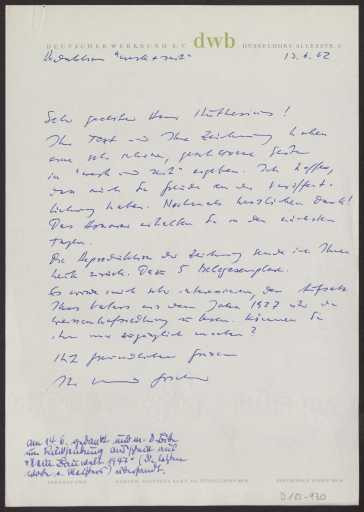 DEUTSCHER WERKBUND E.V. dwb DÜSSELDORF ALLEESTR.
Redaktion "werk + zeit" 13.6.62
Sehr geehrter Herr Muthesius!
Ihr Text und Ihre Zeichnung haben
eine sehr schöne, geschlossene Seite
in "werk und zeit" ergeben. Ich hoffe,
dass auch Sie Freude an der Veröffent-
lichung haben. Nochmals herzlichen Dank!
Das Honorar erhalten Sie in den nächsten
Tagen.
Die Reproduktion der Zeichnung sende ich Ihnen
heute zurück. Dazu 5 Belegexemplare.
Es würde mich sehr interessieren, den Aufsatz
Ihres Vaters aus dem Jahre 1927 über die
Weissenhofsiedlung zu lesen. Können Sie
ihn mir zugänglich machen?
Mit freundlichen Grüssen
Ihr
am 14.6. gedankt und m. d. Bitte
um Rücksendung
1927
D 10-930